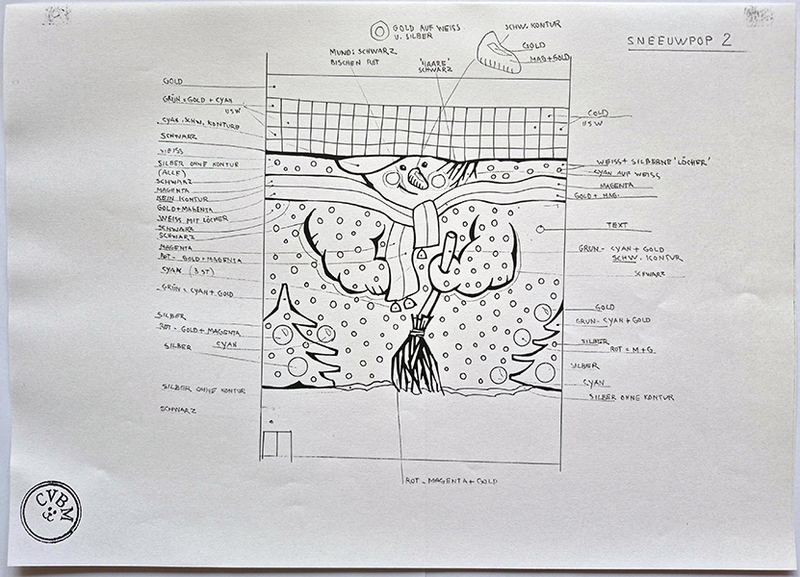 GOLD AUF WEISS
U. SILBER
SCHW. KONTUR
GOLD
MAG + GOLD
SNEEUWPOP 2
MUND: SCHWARZ
BISCHEN ROT
'HAARE'
SCHWARZ
GOLD
GRÜN = GOLD + CYAN
USW
CYAN. SCHW. KONTUREN
SCHWARZ
WEISS
SILBER OHNE KONTUR
(ALLE)
SCHWARZ
MAGENTA
KEIN KONTUR
GOLD + MAGENTA
WEISS MIT LÖCHER
SCHWARZ
SCHWARZ
MAGENTA
ROT - GOLD + MAGENTA
CYAN (3 ST)
GRÜN = CYAN + GOLD
SILBER
ROT - GOLD + MAGENTA
SILBER CYAN
SILBER OHNE KONTUR
SCHWARZ
GOLD
USW
WEISS + SILBERNE 'LÖCHER'
CYAN AUF WEISS
MAGENTA
GOLD + MAG.
TEXT
GRÜN - CYAN + GOLD
SCHW. KONTUR
SCHWARZ
GOLD
GRÜN - CYAN + GOLD
SILBER
ROT = M + G.
SILBER
CYAN
SILBER OHNE KONTUR
ROT - MAGENTA + GOLD
CVBM